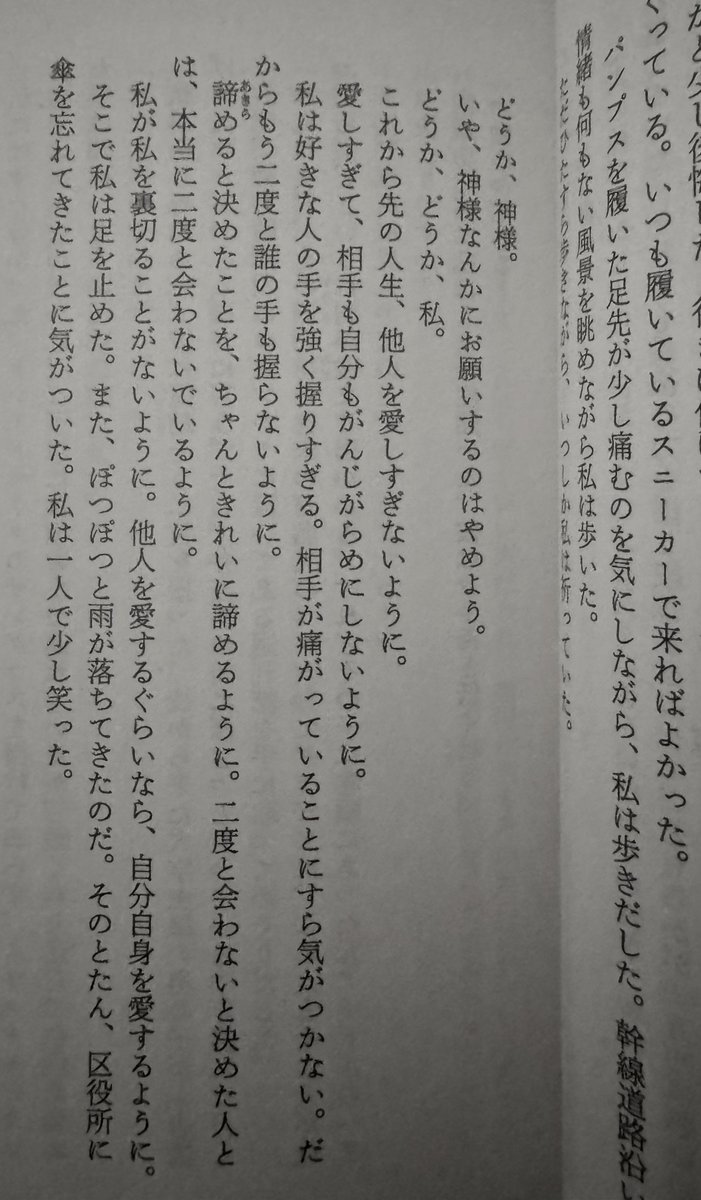 くっている。いつも履いているスニーカーで来ればよかった。
パンプスを履いた足先が少し痛むのを気にしながら、私は歩きだした。幹線道路沿い
情緒も何もない風景を眺めながら私は歩いた。
ただひたすら歩きながら、いつしか私は祈っていた。
どうか、神様。
いや、神様なんかにお願いするのはやめよう。
どうか、どうか、私。
これから先の人生、他人を愛しすぎないように。
愛しすぎて、相手も自分もがんじがらめにしないように。
私は好きな人の手を強く握りすぎる。相手が痛がっていることにすら気がつかない。だ
からもう二度と誰の手も握らないように。
諦めると決めたことを、ちゃんときれいに諦めるように。二度と会わないと決めた人と
は、本当に二度と会わないでいるように。
私が私を裏切ることがないように。他人を愛するぐらいなら、自分自身を愛するように。
そこで私は足を止めた。また、ぽつぽつと雨が落ちてきたのだ。そのとたん、区役所に
傘を忘れてきたことに気がついた。私は一人で少し笑った。